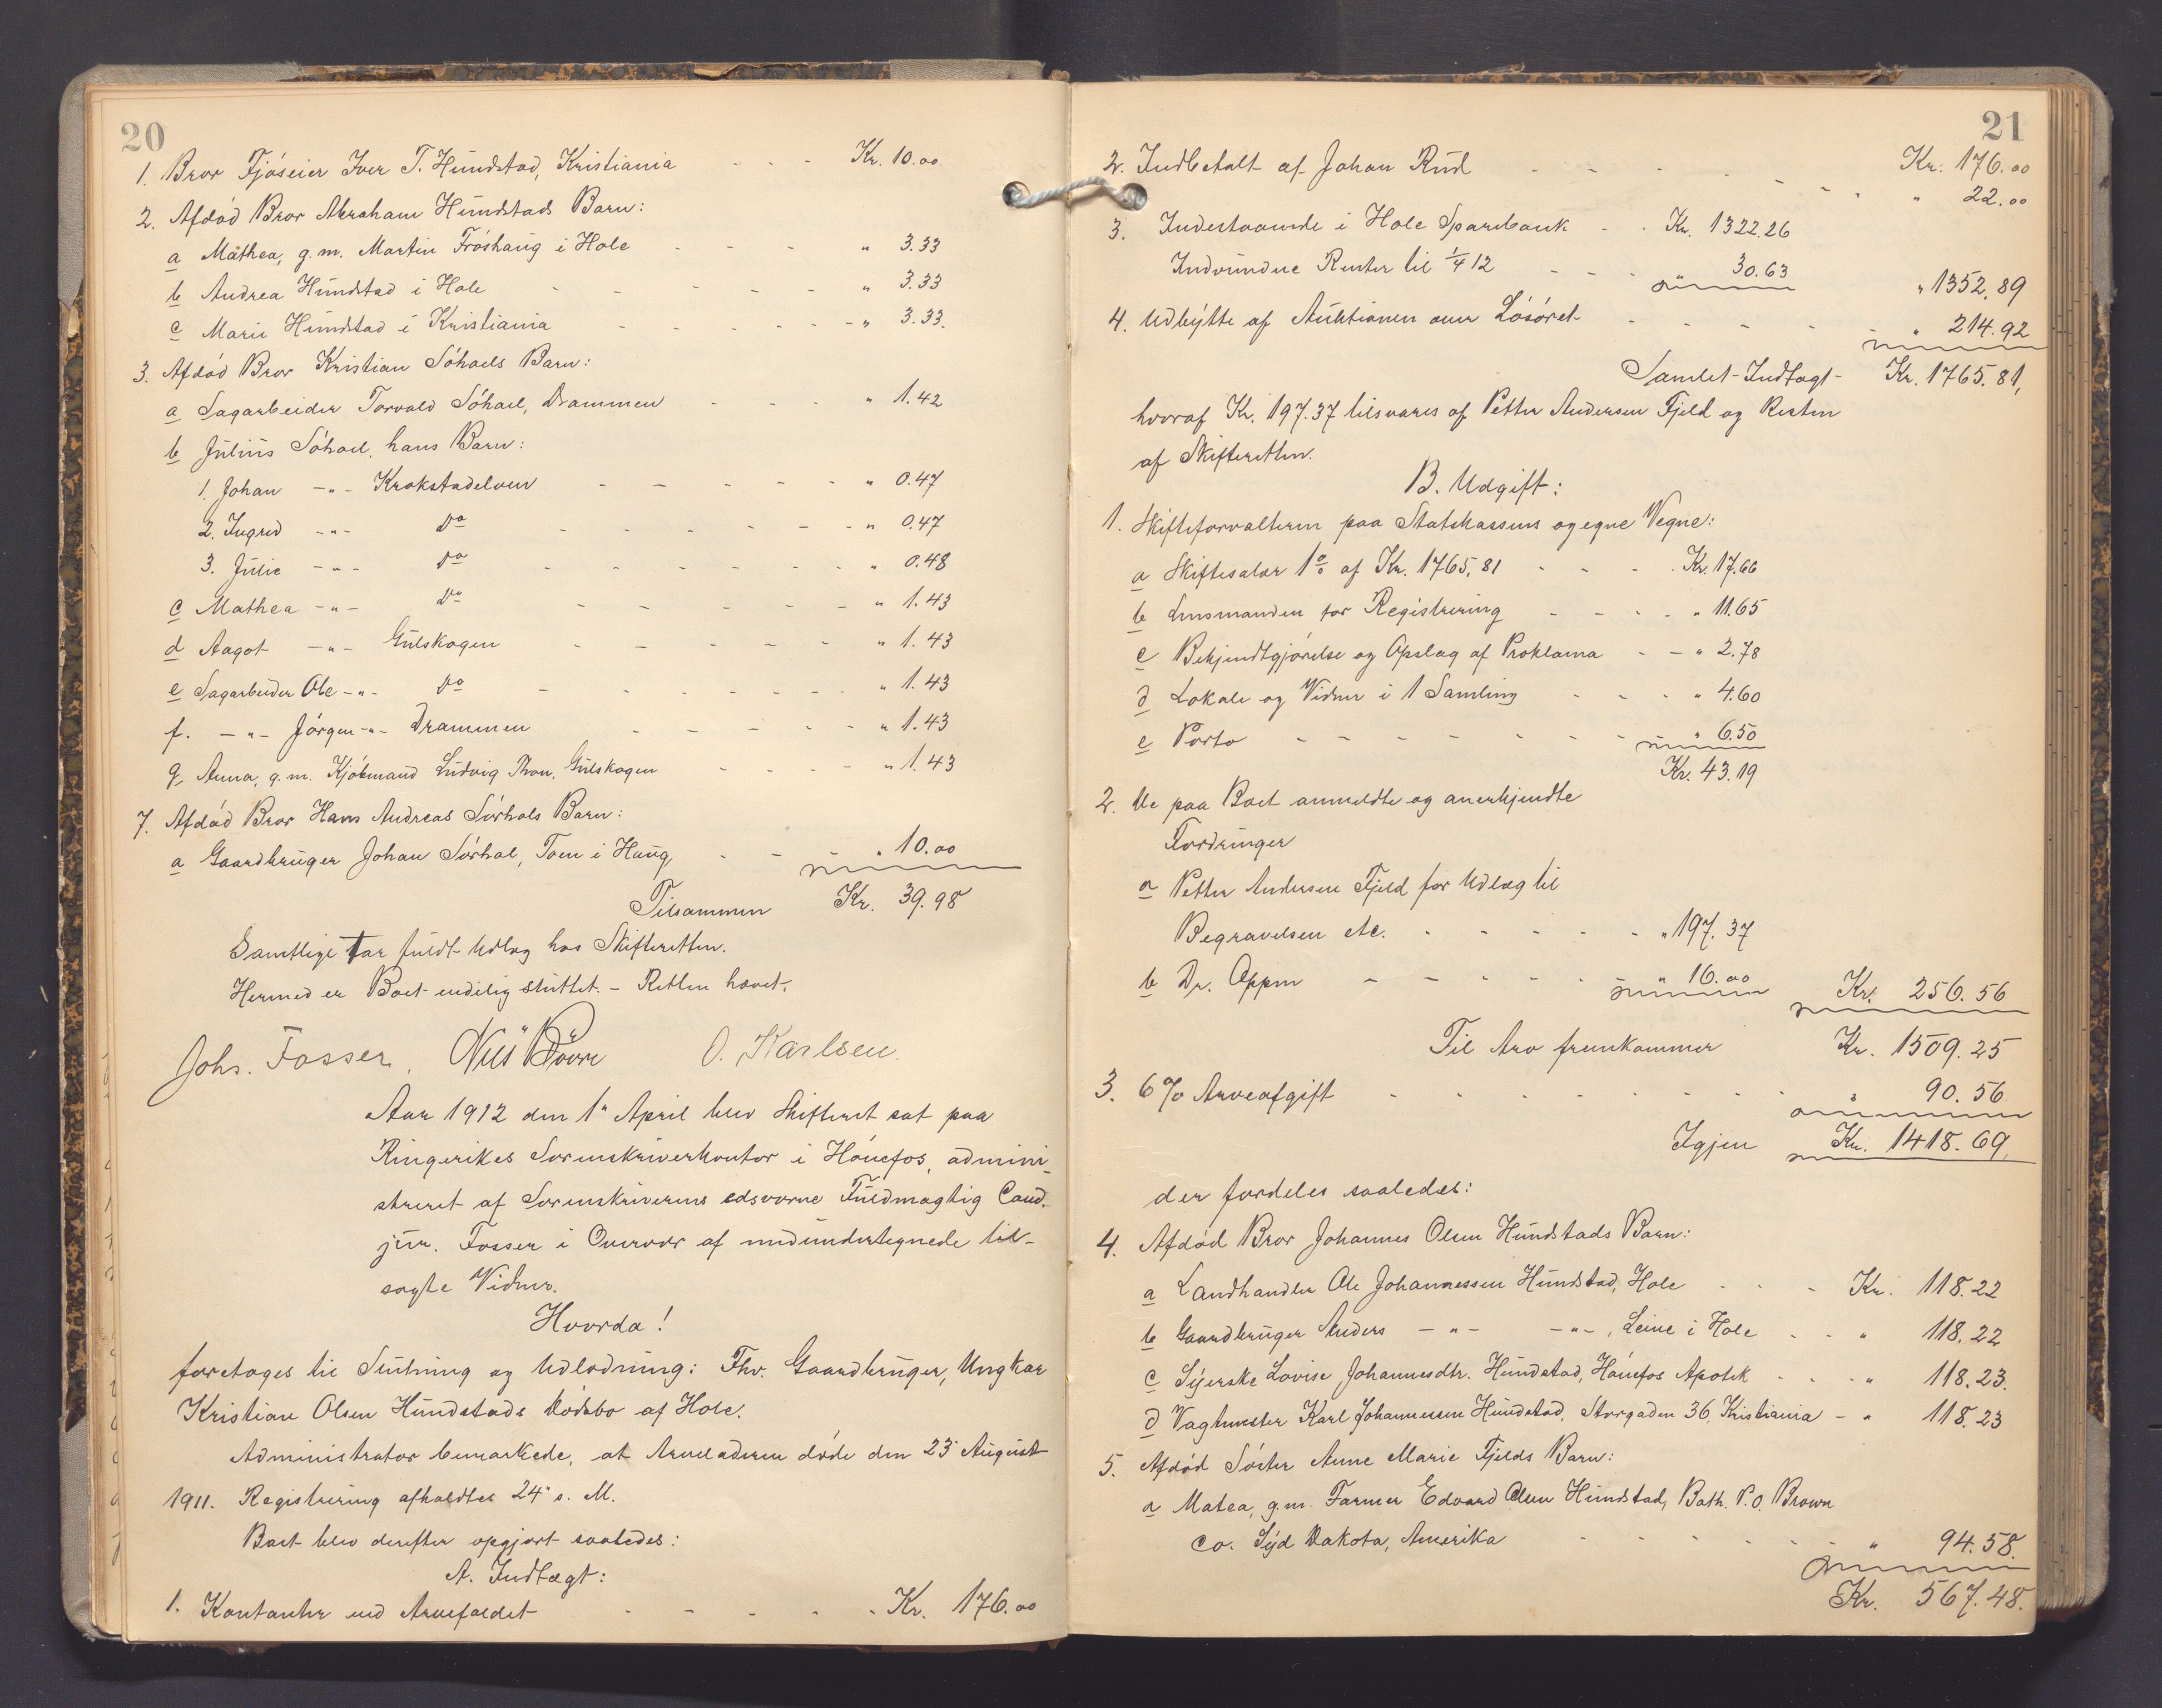 20
1. Bror Fjøseier Iver T. Hundstad, Kristiania - - - Kr. 10.00
2. Afdød Bror Abraham Hundstads Barn:
a Mathea, g.m. Martin Frøshaug i Hole - - - " 3.33
b Andrea Hundstad i Hole - - - - - " 3.33
c Marie Hundstad i Kristiania - - - - - " 3.33.
3. Afdød Bror Kristian Søhols Barn:
a Sagarbeider Torvald Søhol, Drammen - - - " 1.42
b Julius Søhol, hans Barn:
1. Johan -"- Krokstadelven - - - - - " 0.47
2. Ingrid -"- Do - - - - - - " 0.47
3. Julie -"- Do - - - - - - " 0.48
c Mathea -"- Do - - - - - " 1.43
d Aagot -"- Gulskogen - - - - - " 1.43
e Sagarbeider Ole -"- Do - - - - - - " 1.43
f. -"- Jørgen -"- Drammen - - - - - " 1.43
g, Anna, g.m. Kjøbmand Ludvig Thon, Gulskogen - - - - " 1.43
7. Afdød Bror Hans Andreas Sørhols Barn:
a Gaardbruger Johan Sørhol, Toen i Haug - - - " 10.00
Tilsammen Kr. 39.98
Samtlige tar fuldt Udlæg hos Skifteretten.
Hermed er Boet endelig sluttet. - Retten hævet.
Johs. Fosser, Nils O. Karlsen.
Aar 1912 den 1" April blev Skifteret sat paa
Ringerikes Sorenskriverkontor i Hønefos, admini-
streret af Sorenskriverens edsvorne Fuldmægtig Cand.
jur. Fosser i Overvær af medundertegnede til-
sagte Vidner.
Hvorda!
foretoges til Slutning og Udlodning: Fhv. Gaardbruger, Ungkar
Kristian Olsen Hundstads Dødsbo af Hole.
Administrator bemærkede, at Arveladeren døde den 23' August
1911. Registrering afholdtes 24' s. M.
Boet blev derefter opgjort saaledes:
A. Indtægt:
1. Kontanter ved Arvefaldet - - - - - Kr. 176.00
21
Kr. 176.00
2. Indbetalt af Johan Rud - - - - - - " 22.00
3. Indestaaende i Hole Sparebank - - Kr. 1322.26
Indvundne Renter til 1/4 12 - - - " 30.63
" 1352.89
4. Udbytte af Auktionen over Løsøret - - - - - " 214.92
Samlet-Indtægt- Kr. 1765.81,
hvoraf Kr. 197.37 tilsvares af Petter Andersen Fjeld og Resten
af Skifteretten.
B. Udgift:
1. Skifteforvalteren paa Statskassens og egne Vegne:
a Skiftesalær 1% af Kr. 1765,81 - - - - Kr. 17.66
b Lensmanden for Registrering - - - - " 11.65
c Bekjendtgjørelse og Opslag af Proklama - - " 2.78
d Lokale og Vidner i 1 Samling - - - " 4.60
e Porto - - - - - - - " 6.50
Kr. 43.19
2. De paa Boet anmeldte og anerkjendte
Fordringer
a Petter Andersen Fjeld for Udlæg til
Begravelsen etc. - - - - - " 197.37
b Dr. Oppen - - - - - " 16.00 Kr. 256.56
Til Arv fremkommer Kr. 1509.25
3. 6% Arveafgift - - - - - - - " 90.56
Igjen Kr. 1418.69,
der fordeles saaledes:
4. Afdød Bror Johannes Olsen Hundstads Barn:
a Landhandler Ole Johannessen Hundstad, Hole - - - Kr. 118.22
b Gaardbruger Anders -"- -"-, Leine i Hole - - " 118.22
c Syerske Lovise Johannesdtr. Hundstad, Hønefos Apotek - - - " 118.23.
d Vagtmester Karl Johannessen Hundstad, Storgaden 36, Kristiania - " 118.23
5. Afdød Søster Anne Marie Fjelds Barn:
a Matea, g.m. Farmer Edvard Olsen Hundstad, Bath. P.O. Brown
co. Syd Dakota, Amerika - - - - - " 94.58.
Kr. 567.48.